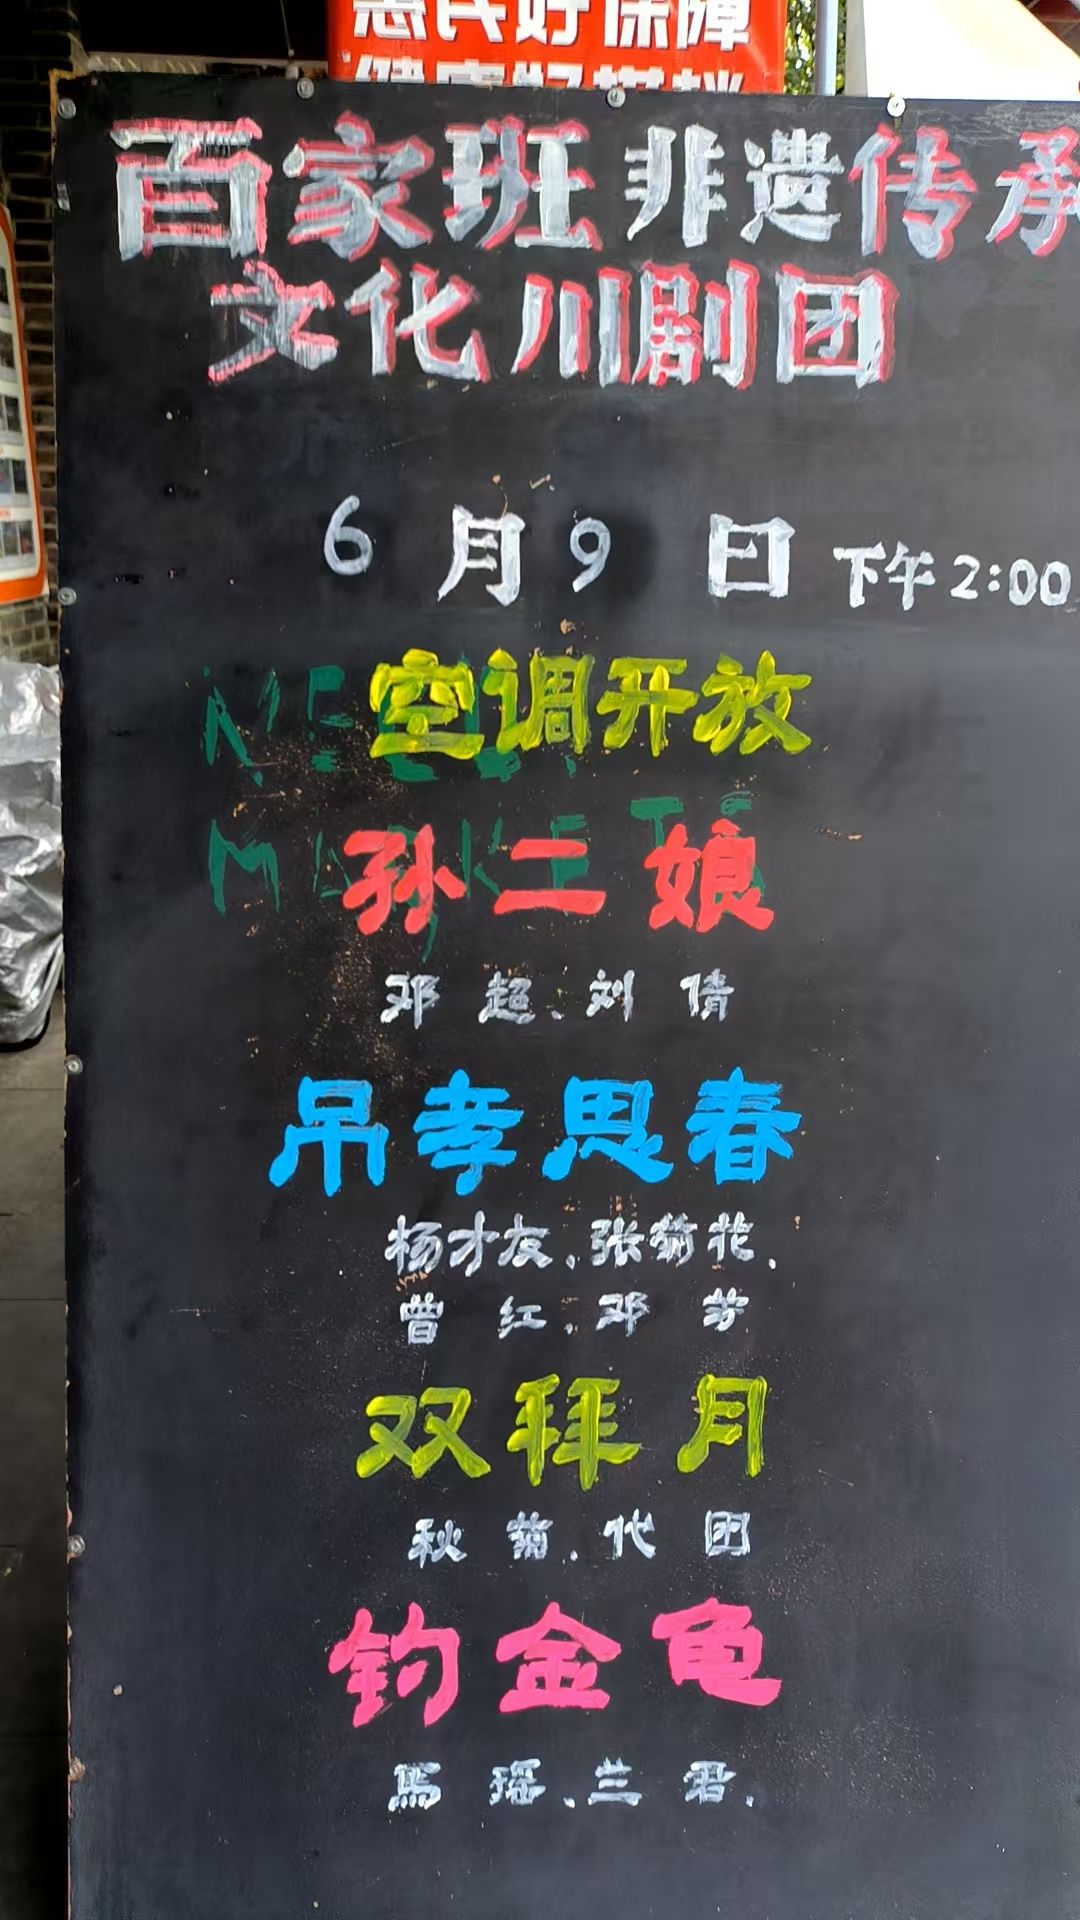 惠民好保障
百家班非遗传承
文化川剧团
6月9日下午2:00
空调开放
孙二娘
邓超、刘倩
吊孝思春
杨才友、张菊花、
曾红、邓芳
双拜月
秋菊、代团
钓金龟
马瑶、兰君、